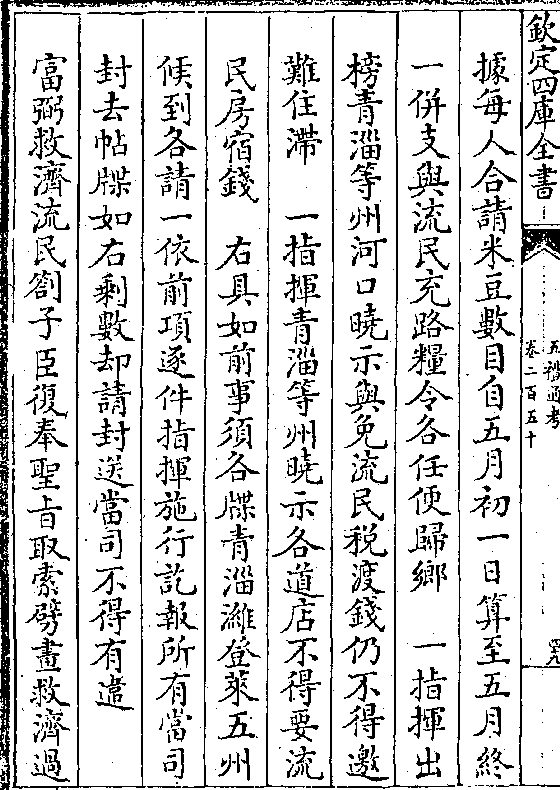 欽定四庫全書
五禮通考
卷二百五十
據每人合請米豆數目自五月初一日算至五月終
一併支與流民充路糧令各任便歸鄉　一指揮出
榜青淄等州河口曉示與免流民稅渡錢仍不得邀
難住滯　一指揮青淄等州曉示各道店不得要流
民房宿錢　右具如前事須各牒青淄濰登萊五州
候到各請一依前項逐件指揮施行訖報所有當司
封去帖牒如右剩數却請封送當司不得有違
富弼救濟流民劄子臣復奉聖旨取索劈畫救濟過